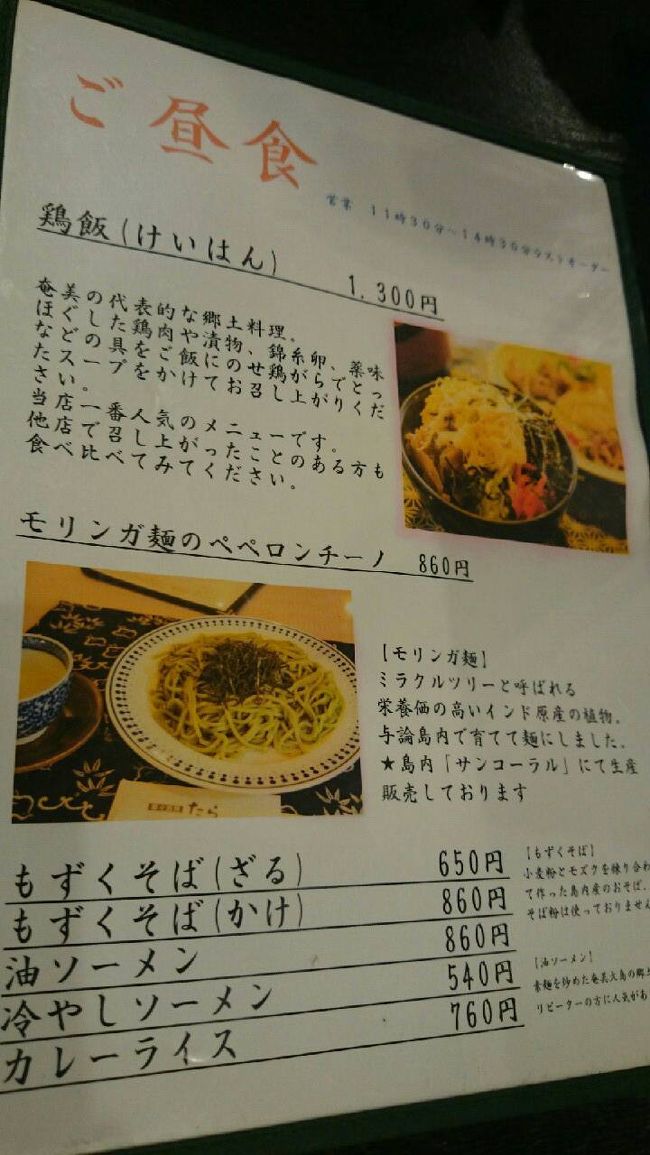 ご昼食
営業 11時30分～14時30分ラストオーダー
鶏飯(けいはん) 1,300円
奄美の代表的な郷土料理。
ほぐした鶏肉や漬物、錦糸卵、薬味
などの具をご飯にのせ鶏がらでとっ
たスープをかけてお召し上がりくだ
さい。
当店一番人気のメニューです。
他店で召し上がったことのある方も
食べ比べてみてください。
モリンガ麺のペペロンチーノ 860円
【モリンガ麺】
ミラクルツリーと呼ばれる
栄養価の高いインド原産の植物。
与論島内で育てて麺にしました。
★島内「サンコーラル」にて生産
販売しております
たら
もずくそば(ざる) 650円
もずくそば(かけ) 860円
油ソーメン 860円
冷やしソーメン 540円
カレーライス 760円
【もずくそば】
小麦粉とモズクを練り合わ
て作った島内産のおそば。
そば粉は使っておりません
【油ソーメン】
素麺を炒めた奄美大島の郷土
リピーターの方に人気があ